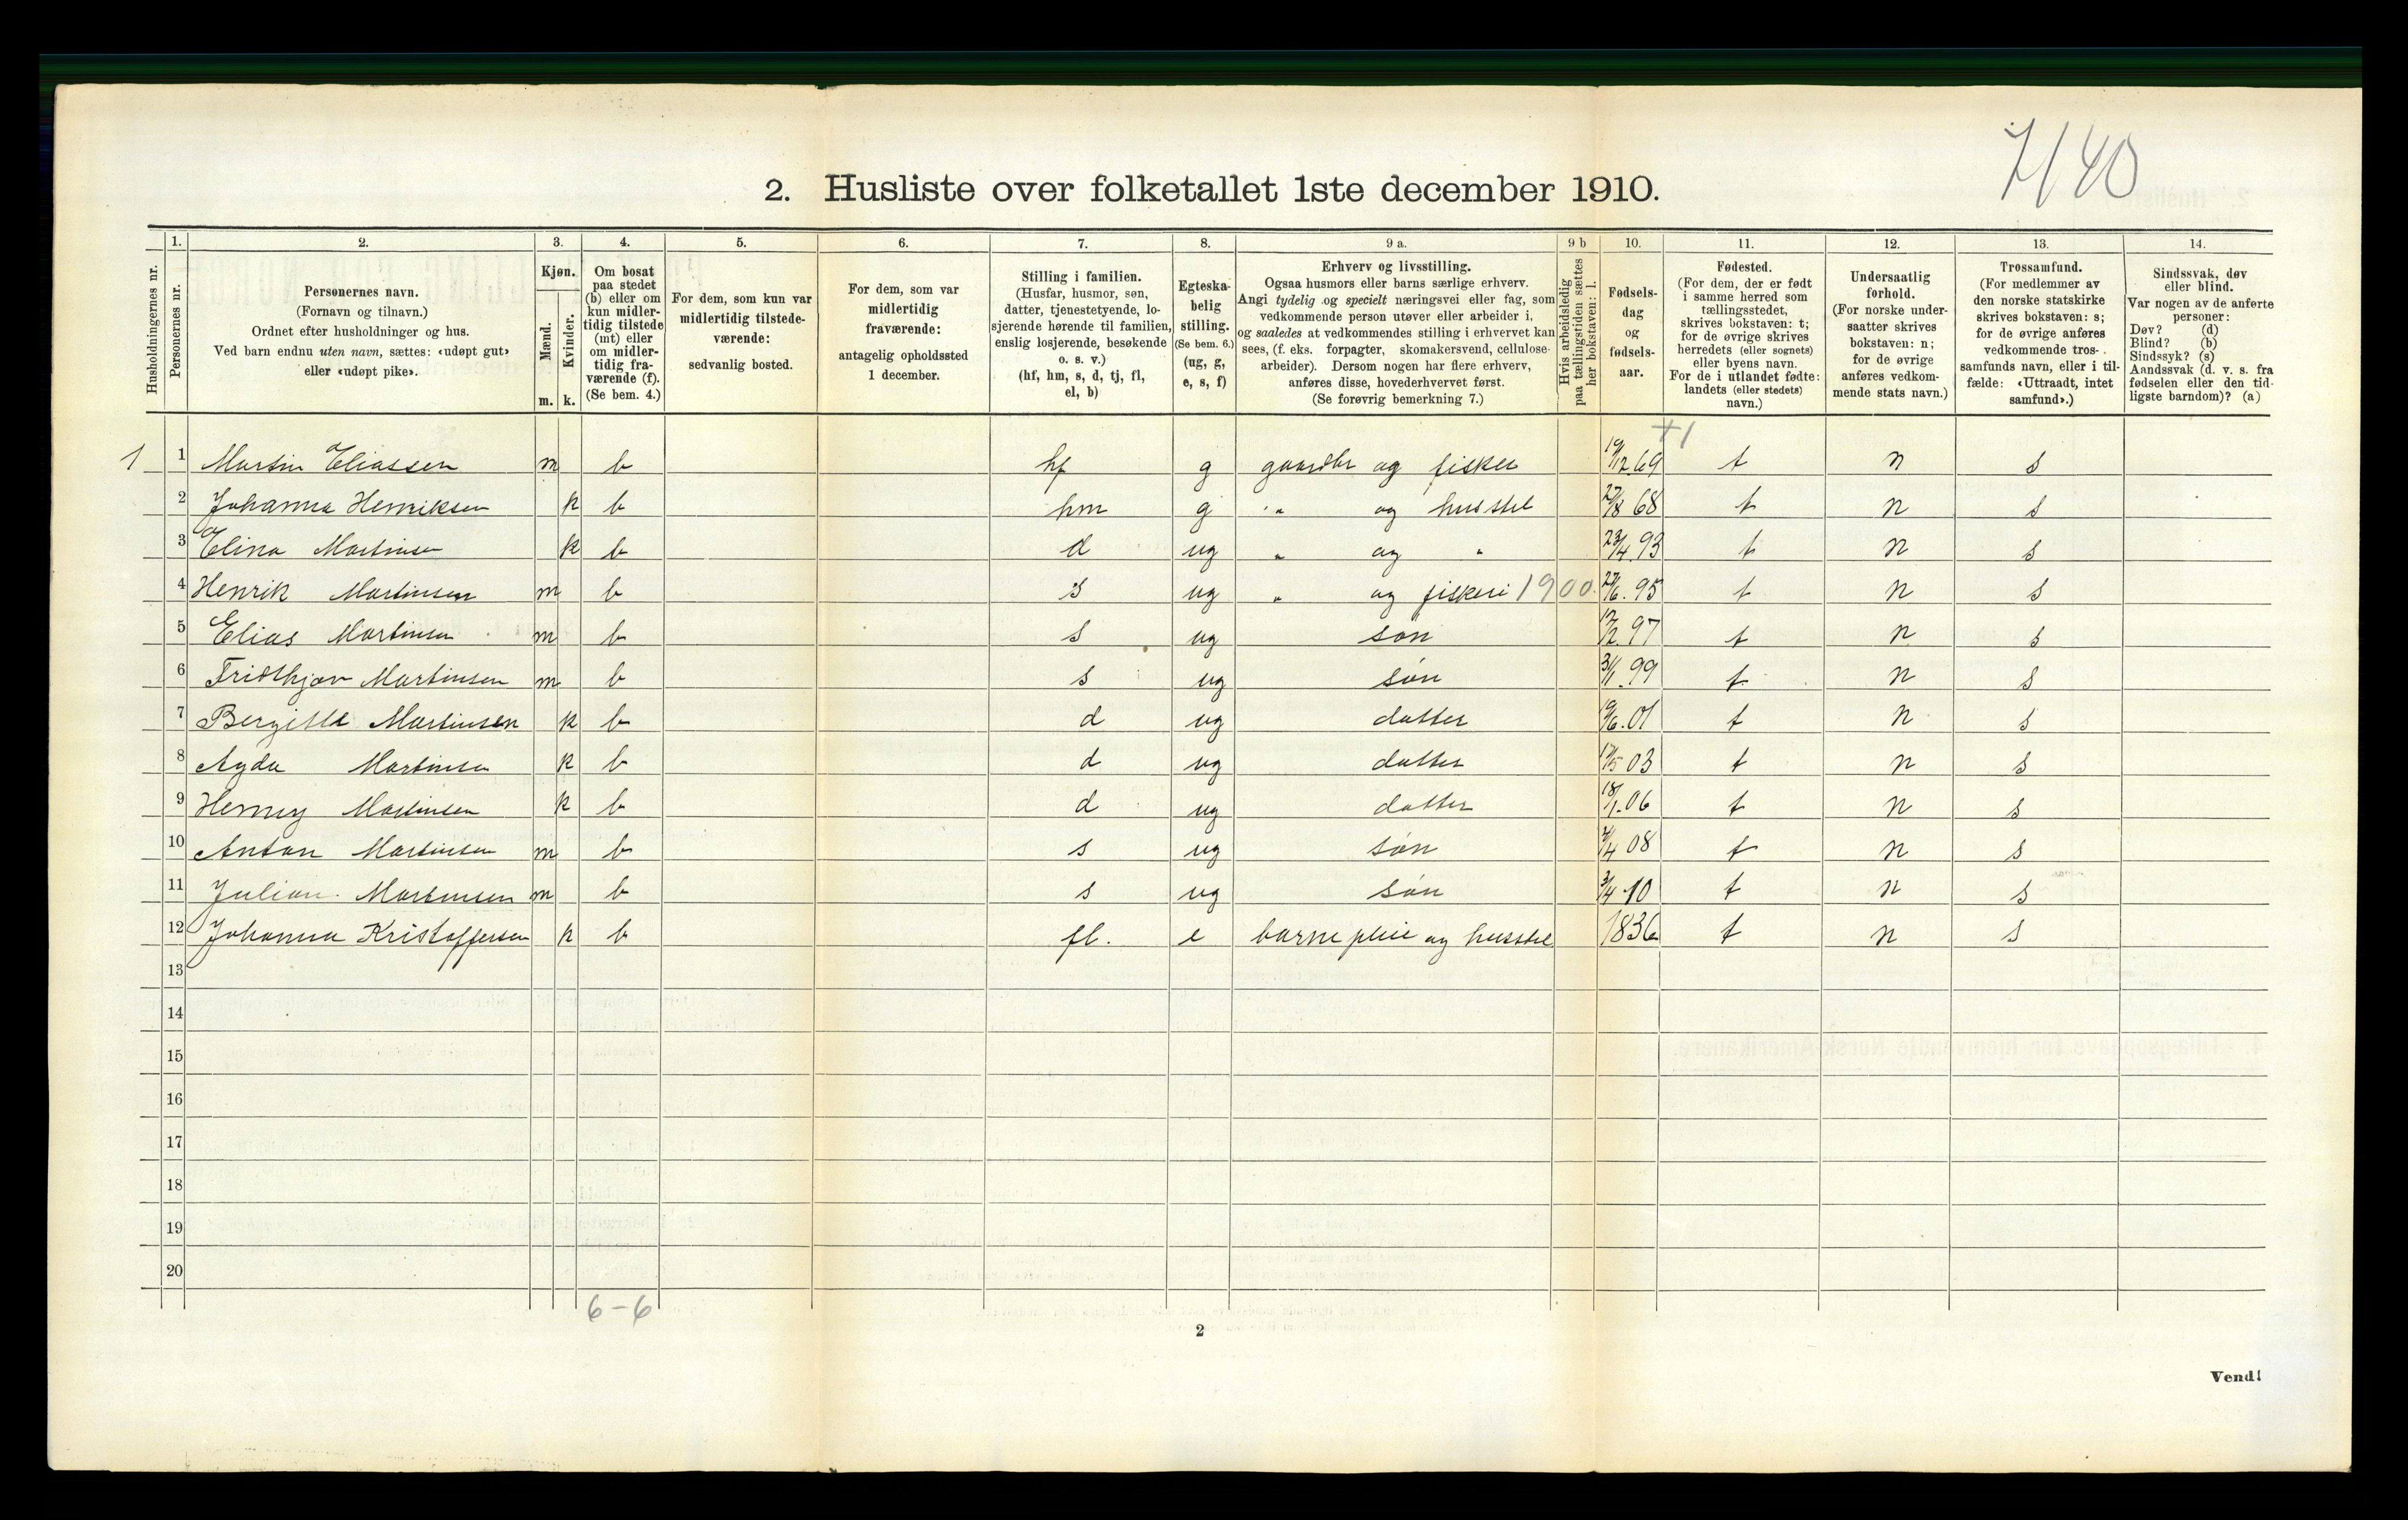 7/40
2. Husliste over folketallet 1ste december 1910.
Husholdningernes nr.
1.
Personernes nr.
2.
Personernes navn.
(Fornavn og tilnavn.)
Ordnet efter husholdninger og hus.
Ved barn endnu uten navn, sættes: «udøpt gut»
eller «udøpt pike».
3.
Kjøn.
Mænd.
Kvinder.
m. k.
4.
Om bosat
paa stedet
(b) eller om
kun midler-
tidig tilstede
(mt) eller
om midler-
tidig fra-
værende (f).
(Se bem. 4.)
5.
For dem, som kun var
midlertidig tilstede-
værende:
sedvanlig bosted.
6.
For dem, som var
midlertidig
fraværende:
antagelig opholdssted
1 december.
7.
Stilling i familien.
(Husfar, husmor, søn,
datter, tjenestetyende, lo-
sjerende hørende til familien,
enslig losjerende, besøkende
o. s. v.)
(hf, hm, s, d, tj, fl,
el, b)
8.
Egteska-
belig
stilling.
(Se bem. 6.)
(ug, g,
e, s, f)
9 a.
Erhverv og livsstilling.
Ogsaa husmors eller barns særlige erhverv.
Angi tydelig og specielt næringsvei eller fag, som
vedkommende person utøver eller arbeider i,
og saaledes at vedkommendes stilling i erhvervet kan
sees, (f. eks. forpagter, skomakersvend, cellulose-
arbeider). Dersom nogen har flere erhverv,
anføres disse, hovederhvervet først.
(Se forøvrig bemerkning 7.)
9 b
Hvis arbeidsledig
paa tællingstiden sættes
her bokstaven: l.
10.
Fødsels-
dag
og
fødsels-
aar.
11.
Fødested.
(For dem, der er født
i samme herred som
tællingsstedet,
skrives bokstaven: t;
for de øvrige skrives
herredets (eller sognets)
eller byens navn.
For de i utlandet fødte:
landets (eller stedets)
navn.)
12.
Undersaatlig
forhold.
(For norske under-
saatter skrives
bokstaven: n;
for de øvrige
anføres vedkom-
mende stats navn.)
13.
Trossamfund.
(For medlemmer av
den norske statskirke
skrives bokstaven: s;
for de øvrige anføres
vedkommende tros-
samfunds navn, eller i til-
fælde: «Uttraadt, intet
samfund».)
14.
Sindssvak, døv
eller blind.
Var nogen av de anførte
personer:
Døv? (d)
Blind? (b)
Sindssyk? (s)
Aandssvak (d. v. s. fra
fødselen eller den tid-
ligste barndom)? (a)
1 1 Martin Eliassen m b hf g gaardbr og fisker 19/12 69 t n s
2 Johanna Henriksen k b hm g " og husstel 27/8 68 t n s
3 Elina Martinsen k b d ug " og " 23/4 93 t n s
4 Henrik Martinsen m b s ug " og fiskeri 1900 27/6. 95 t n s
5 Elias Martinsen m b s ug søn 97 t n s
6 Fridthjov Martinsen m b s ug søn 31/1. 99 t n s
7 Bergitte Martinsen k b d ug datter 19/6. 01 t n s
8 Agda Martinsen k b d ug datter 17/5 03 t n s
9 Henny Martinsen k b d ug datter 18/1. 06 t n s
10 Anton Martinsen m b s ug søn 2/4 08 t n s
11 Julian Martinsen m b s ug søn 3/4 10 t n s
12 Johanna Kristoffersen k b fl. e barnepleie og husstel 1836 t n s
13
14
15
16
17
18
19
20
6-6
2
Vend!